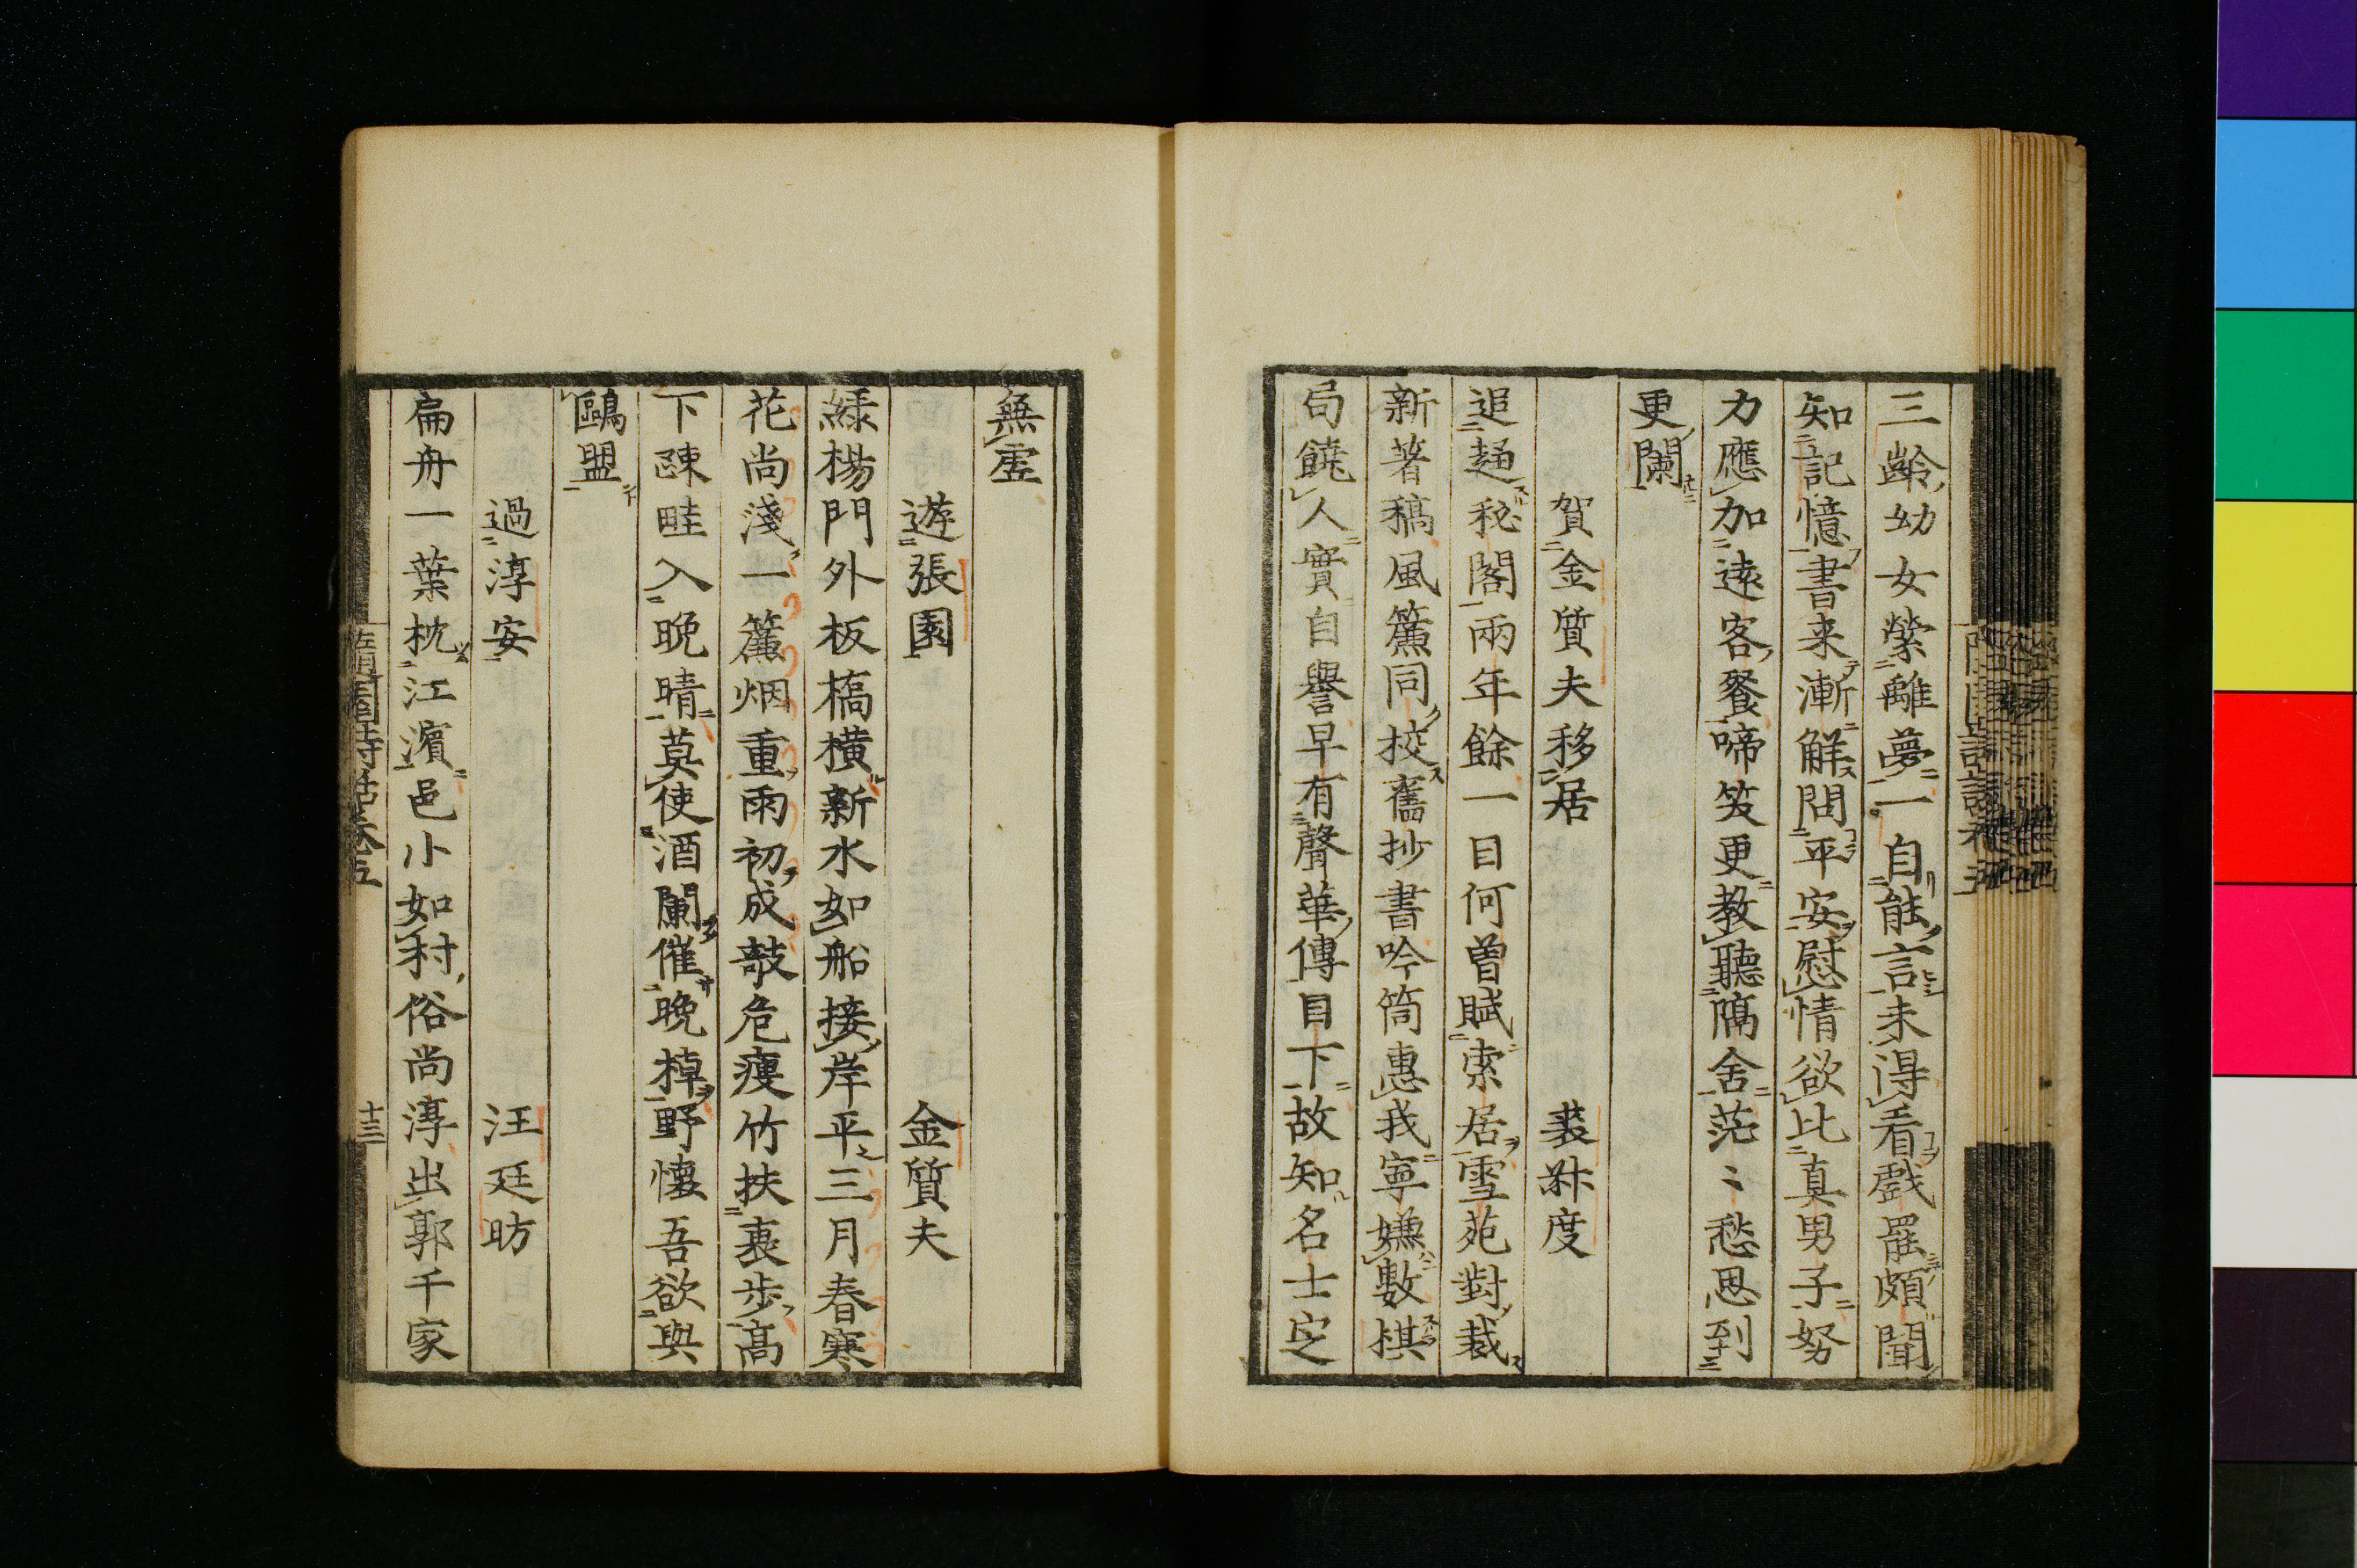 三齡幼女縈離夢一自能言未得看戲罷頗聞
知記憶書来漸解問平安慰情欲比真男子努
力應加遠客餐啼笑更教聽隔舍茫〻愁思到
更闌
賀金質夫移居　裘莍度
追趨秘閣兩年餘一目何曾賦索居雪苑對裁
新著稿風簾同校舊抄書吟筒惠我寧嫌數棋
局饒人實自譽早有聲華傳目下故知名士定
無虛
遊張園　金質夫
綠楊門外板橋橫新水如船接岸平三月春寒
花尚淺一簾烟重雨初成敲危瘦竹扶裏步高
下疎畦入晚晴莫使酒闌催晚棹野懷吾欲與
鷗盟
過淳安　汪廷昉
扁舟一葉枕江濱邑小如村俗尚淳出郭千家
隨園詩話卷五　十三